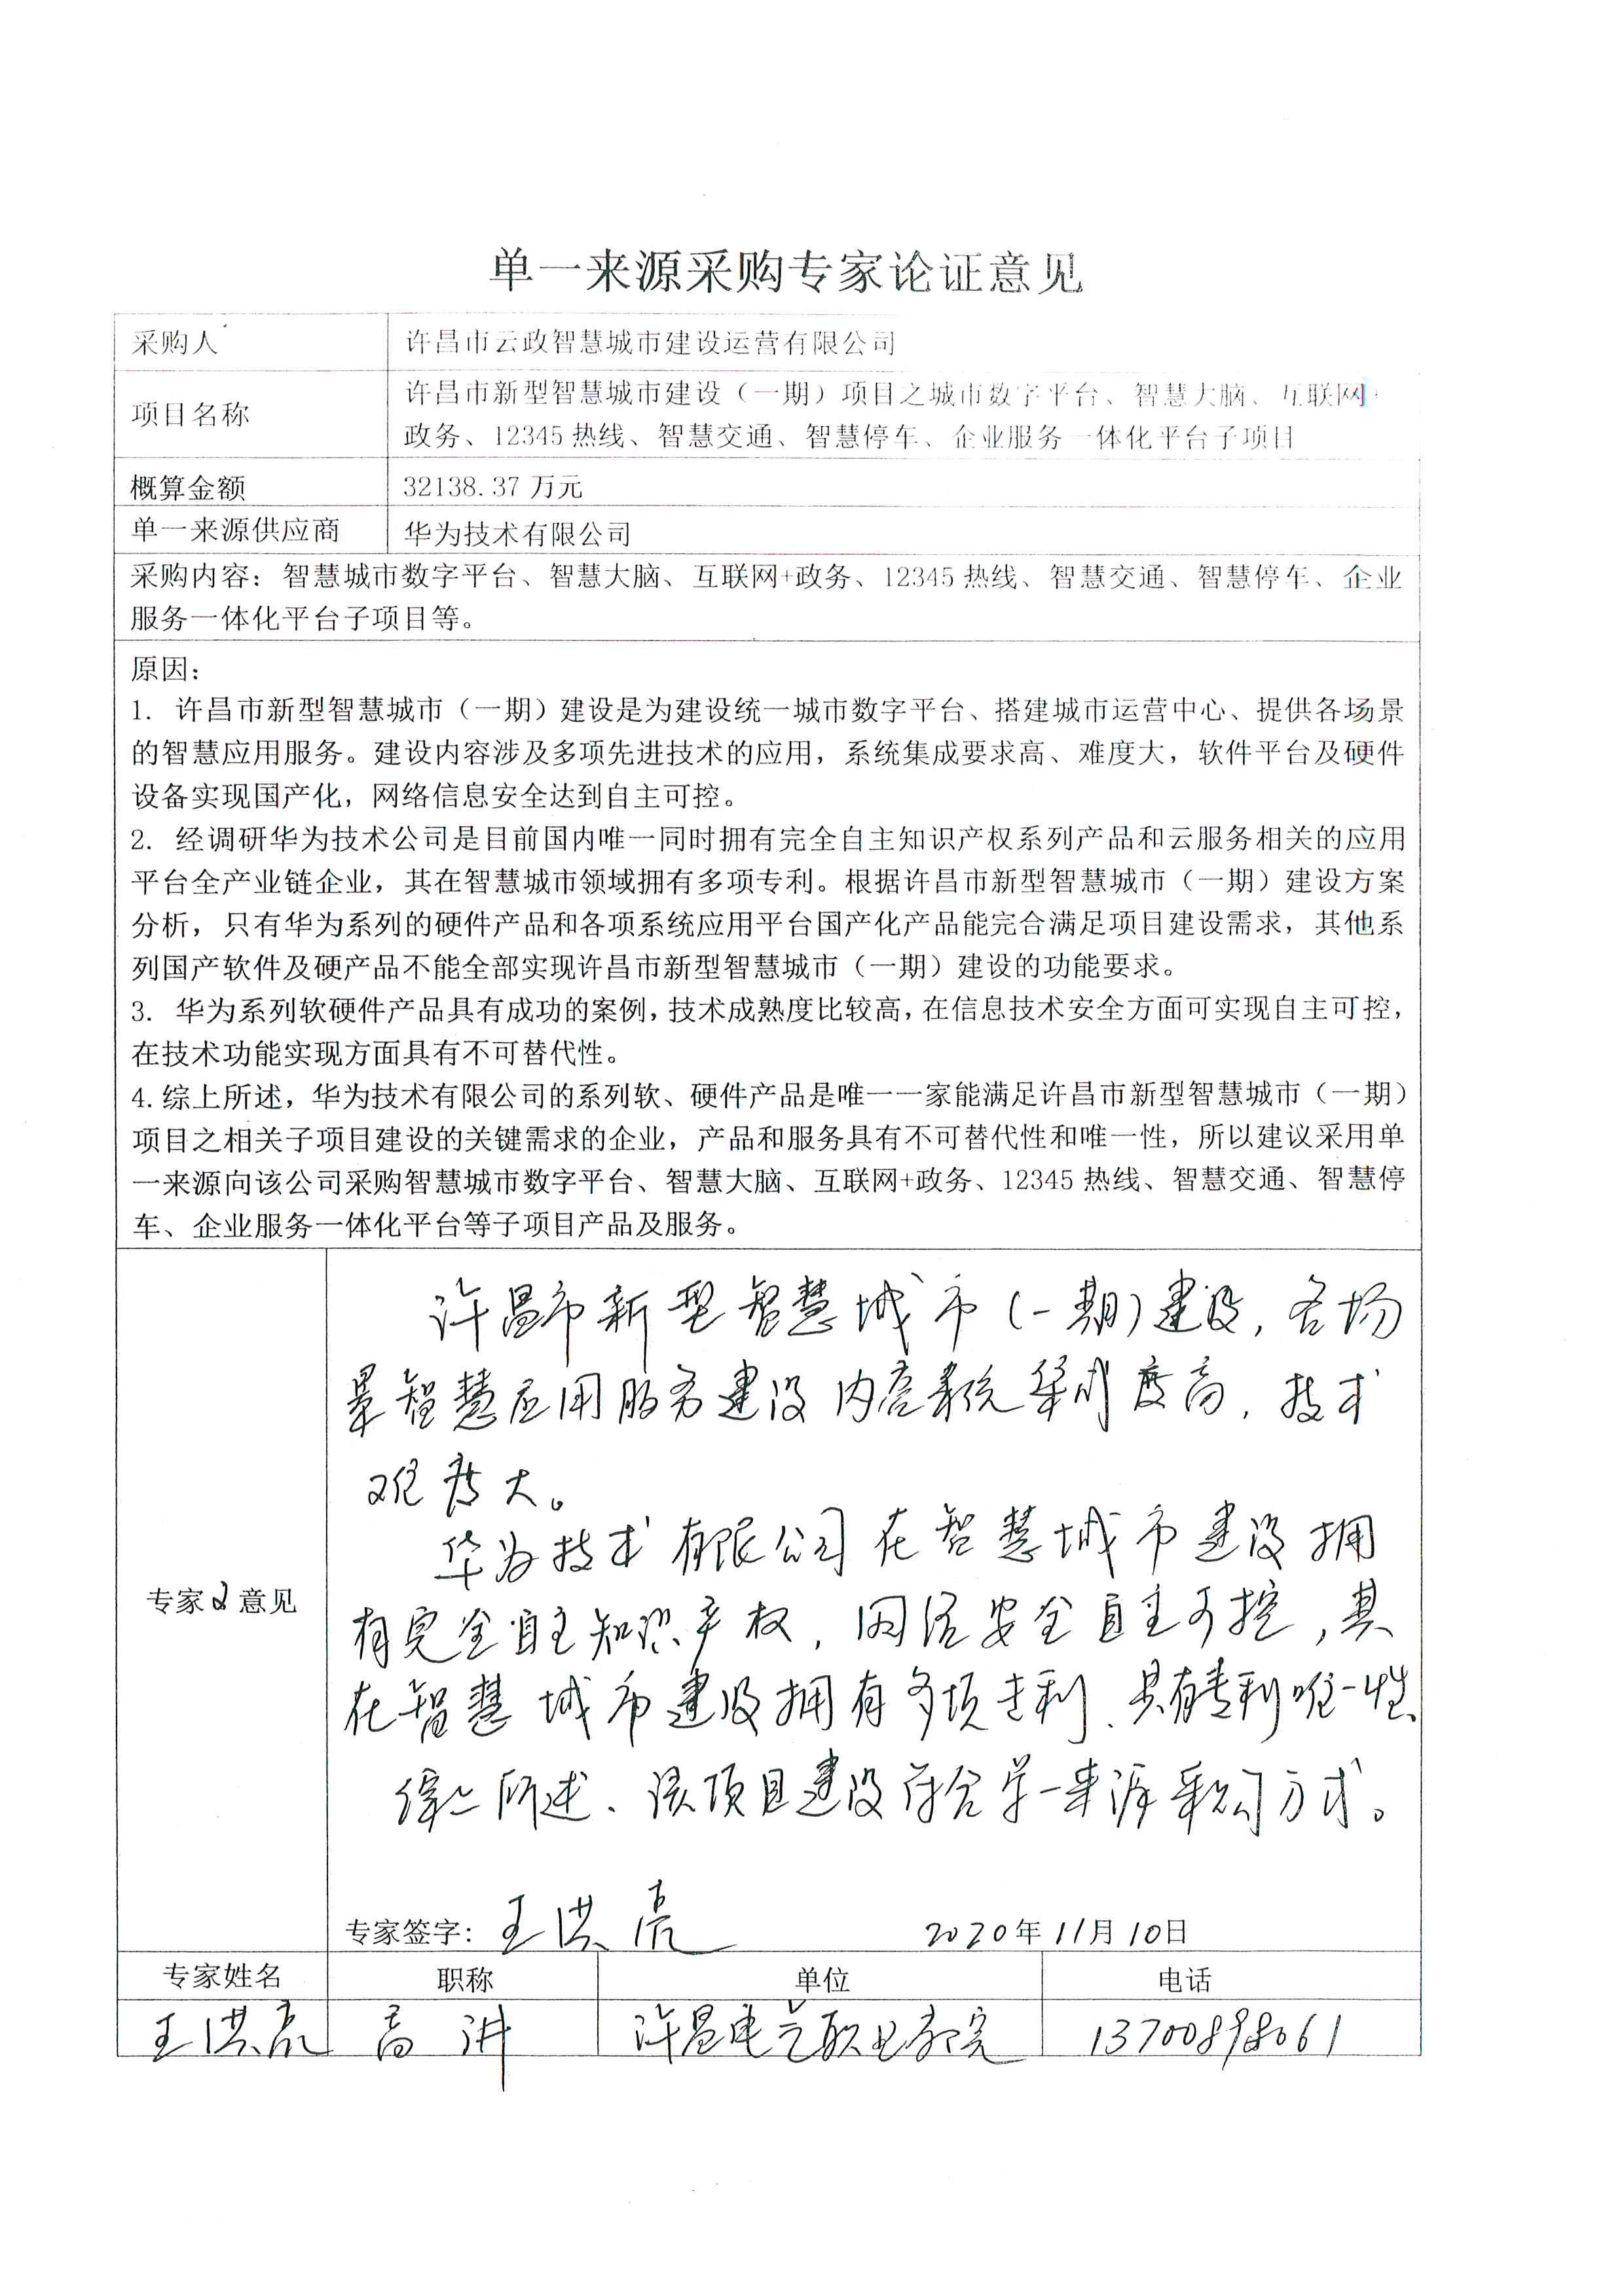 单一来源采购专家论证意见
采购人
许昌市云政智慧城市建设运营有限公司
项目名称
许昌市新型智慧城市建设（一期）项目之城市数字平台、智慧大脑、互联网+
政务、12345热线、智慧交通、智慧停车、企业服务一体化平台子项目
概算金额
32138.37万元
单一来源供应商
华为技术有限公司
采购内容：智慧城市数字平台、智慧大脑、互联网+政务、12345热线、智慧交通、智慧停车、企业
服务一体化平台子项目等。
原因：
1. 许昌市新型智慧城市（一期）建设是为建设统一城市数字平台、搭建城市运营中心、提供各场景
的智慧应用服务。建设内容涉及多项先进技术的应用，系统集成要求高、难度大，软件平台及硬件
设备实现国产化，网络信息安全达到自主可控。
2. 经调研华为技术公司是目前国内唯一同时拥有完全自主知识产权系列产品和云服务相关的应用
平台全产业链企业，其在智慧城市领域拥有多项专利。根据许昌市新型智慧城市（一期）建设方案
分析，只有华为系列的硬件产品和各项系统应用平台国产化产品能完合满足项目建设需求，其他系
列国产软件及硬产品不能全部实现许昌市新型智慧城市（一期）建设的功能要求。
3. 华为系列软硬件产品具有成功的案例，技术成熟度比较高，在信息技术安全方面可实现自主可控，
在技术功能实现方面具有不可替代性。
4.综上所述，华为技术有限公司的系列软、硬件产品是唯一一家能满足许昌市新型智慧城市（一期）
项目之相关子项目建设的关键需求的企业，产品和服务具有不可替代性和唯一性，所以建议采用单
一来源向该公司采购智慧城市数字平台、智慧大脑、互联网+政务、12345热线、智慧交通、智慧停
车、企业服务一体化平台等子项目产品及服务。
许昌市新型智慧城市(一期)建设，各场
景智慧应用服务建设内容系统集成度高，技术
难度大。
华为技术有限公司在智慧城市建设拥
专家2意见
有完全自主知识产权，网络安全自主可控，其
在智慧城市建设拥有多项专利、具有专利唯一性。
综上所述、该项目建设符合单一来源采购方式。
专家签字：王洪亮 2020年11月10日
专家姓名 职称 单位 电话
王洪亮 高讲 许昌电气职业学院 13700898061